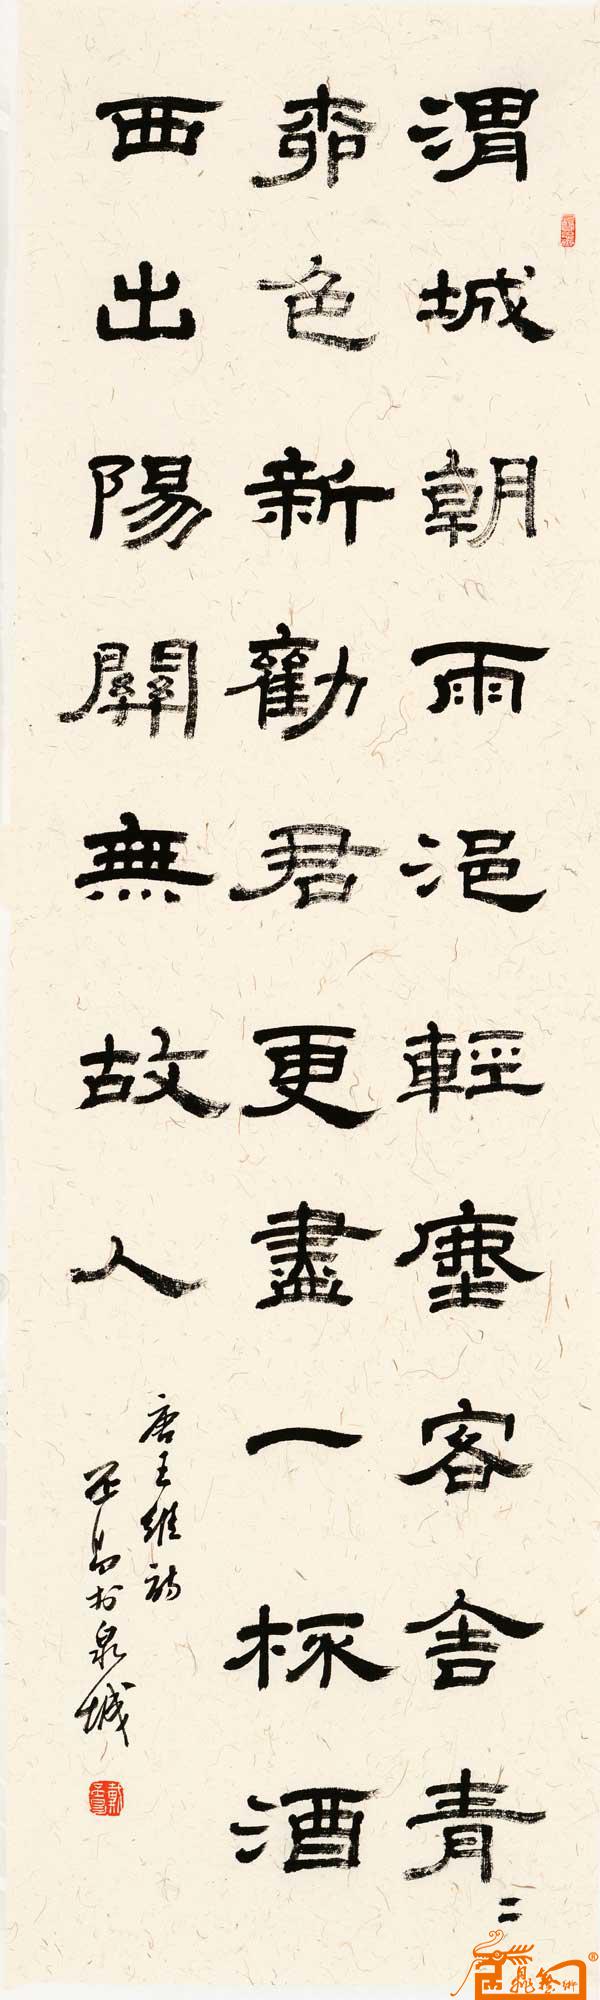 渭城朝雨浥輕塵客舍青〻
桺色新勸君更盡一杯酒
西出陽關無故人
唐王維詩
於泉城